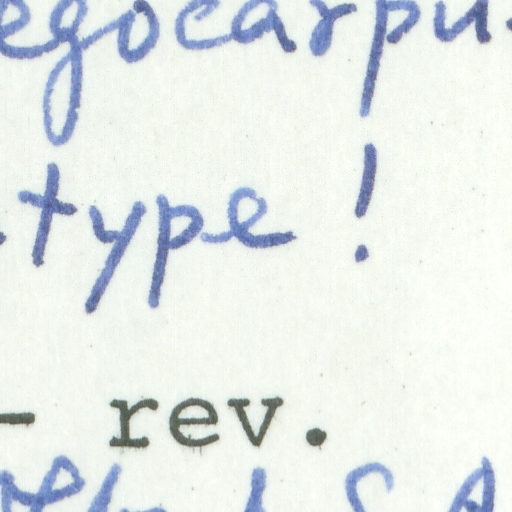 egocarpu
.type !
- rev.